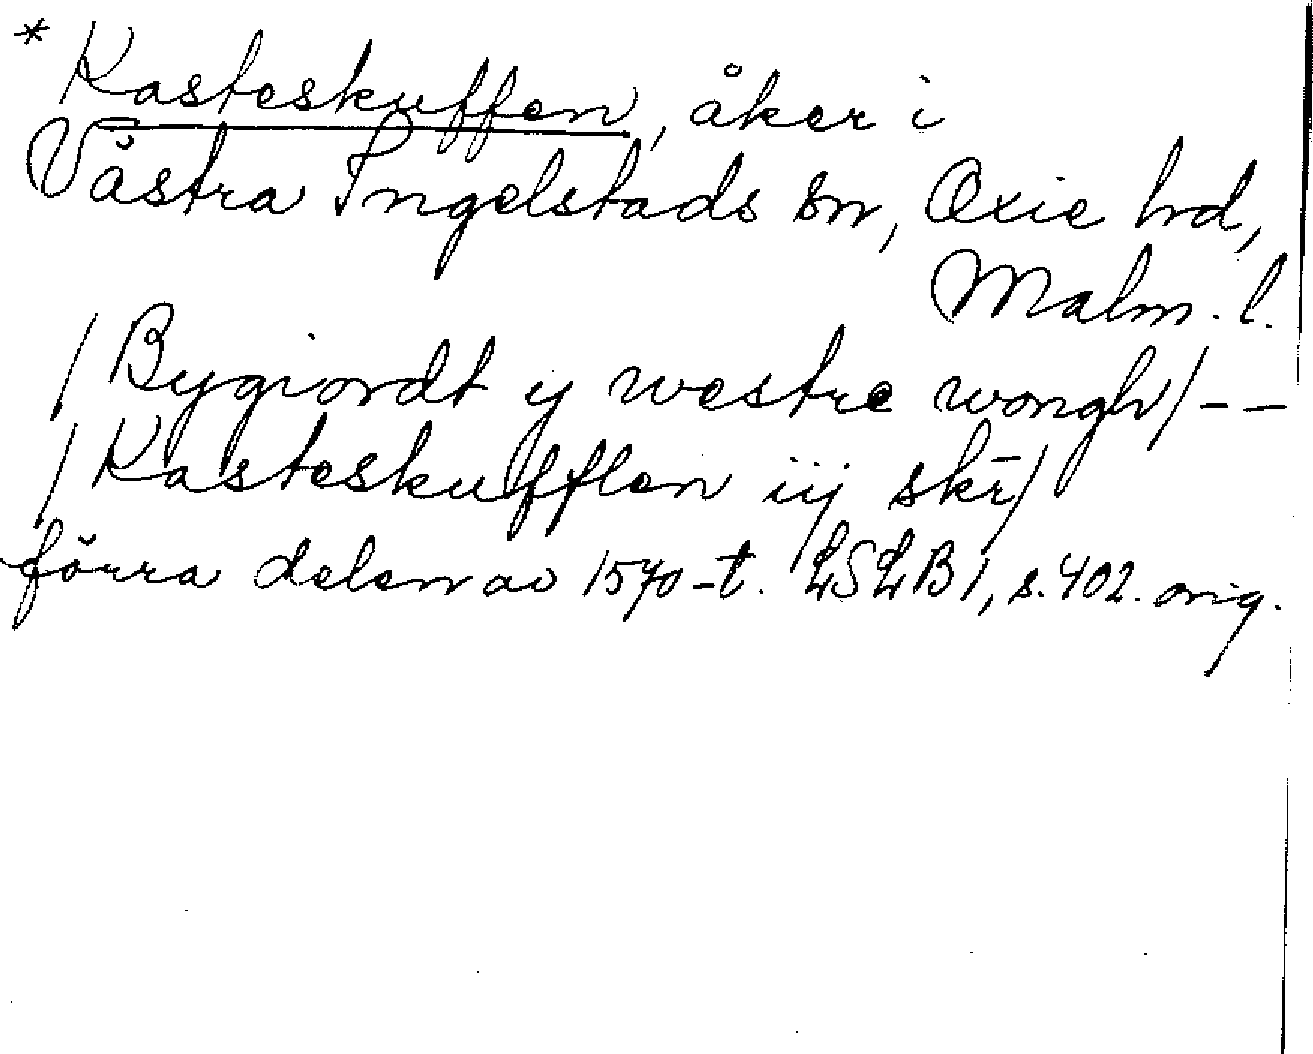 * Kasteskuffen, åker i
Västra Ingelstads sn, Oxie hd,
Malm. l.
/ Bygiordt y westre wongh / - -
/ Kasteskufflen iij skr̄ /
förra delen av 1570-t. LSLB 1, s. 402. orig.